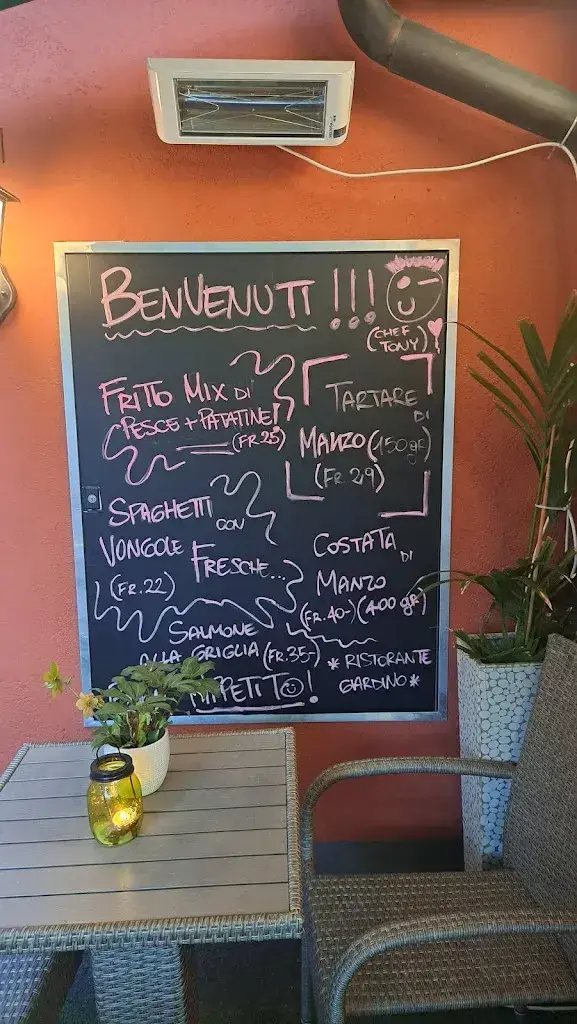 BENVENUTI !!!
(CHEF
TONY)
FRITTO MIX DI
PESCE + PATATINE!
(FR.25)
TARTARE DI
MANZO (150gr)
(FR.29)
SPAGHETTI CON
VONGOLE FRESCHE...
(FR.22)
COSTATA DI
MANZO
(FR.40-) (400gr)
SALMONE
ALLA GRIGLIA (FR.35-)
APPETITO!
* RISTORANTE
GIARDINO *